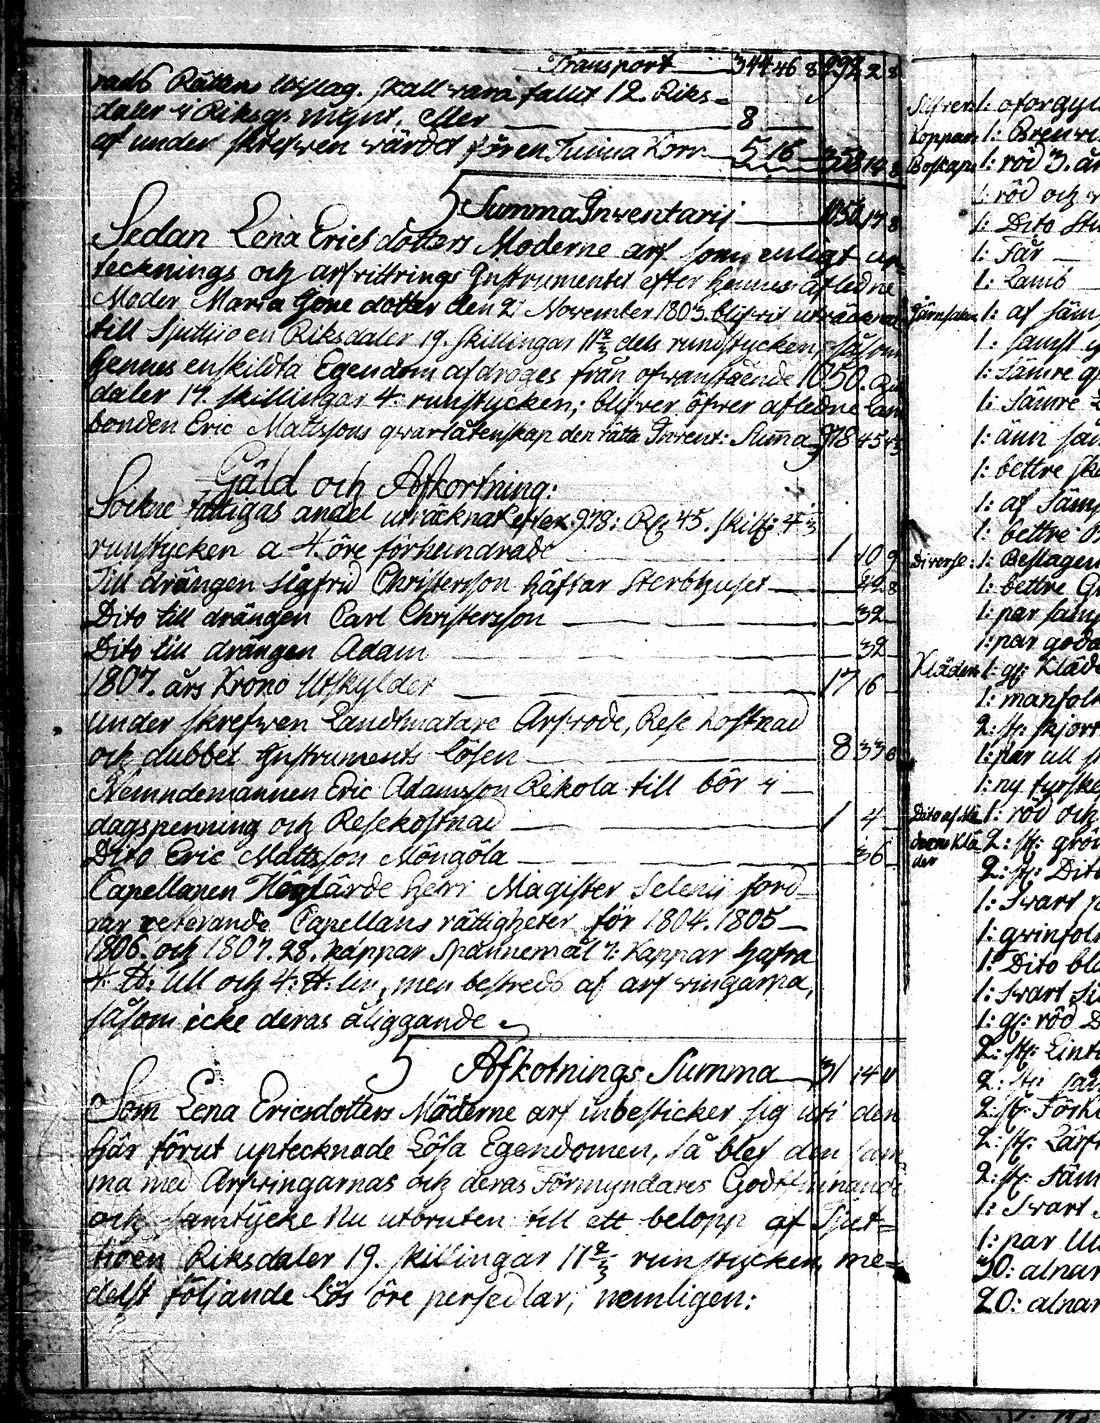 Transport 344 46 8 992 2 8
rads Rättens Utslag. skall vara fallit 12. Riks=
daler i Riksg: mynt, eller 8
af under skrefwen wärdet för en Tunna Korn 5 16 358 14 8
Summa Inventarii 1050 17 8
Sedan Lena Erics dotters Moderne arf som enligt up=
tecknings och arfskiftnings Instrumentet efter hennes afledne
Moder Maria Göne dotter den 2 November 1803. blifvit uträcknat
till Sjuttijo en Riksdaler 19. skillingar 11 2/3 dels rundstycken, såsom
hennes enskildta Egendom afdrages från ofwanstående 1050. Riks
daler 17 skillingar 4: runstycken; blifwer öfwer afledne Lan
bonden Eric Mattssons qwarlåtenskap den rätta Invent: Summa 978 45 4/3
Gäld och Afkortning:
Sockne fattigas andel uträcknat efter 978: Rd: 45. skill: 4/3
runstycken a 4. öre förhundrade 1 10 9
Till drängen Sigfrid Christersson häftar Sterbhuset 42 8
Dito till drängen Carl Christersson 32
Dito till drängen Adam 32
1807. års Krono Utskylder 17 16
under skrefwen Landtmätare Arfvode, Rese kostnad
och dubbel Instruments Lösen 8 33 6
Nemndemannen Eric Adamsson Rekola till bör i
dagspenning och Resekostnad 1 4
Dito Eric Mattsson Möngölä 36
Capellanen Höglärde Herr Magister Selenii ford=
rar reterande Capellans rättigheter för 1804. 1805
1806. och 1807. 28. kappar Spannemål 7: Kappar hafra
4: ℔: Ull och 4: ℔: lin, men bestreds af arfwingarna,
såsom icke deras åliggande.
Afkotnings Summa 31 14 11
Som Lena Ericsdotters Möderne arf inbesticker sig uti den
här förut uptecknade Lösa Egendomen, så blef den sam
ma med Arfwingarnas och deras Förmyndares Godtfinnande
och samtycke Nu utbruten till ett belopp af Sjut=
tioen Riksdaler 19. skillingar 11 2/3 runstycken, me=
delst följande Lös öre persedlar, nemligen:
Silfren 1: oforgyl
Koppar 1: Brenvi
Boskap 1: röd 3. år
1: röd och
1: Dito
1: Får
1: Lamb
Järnsaker 1: af säm
1: samst
1: Sämre
1: Sämre
1: änn sä
1: bettre ske
1: af Säm
1: bettre
Diverse: 1: Beslagen
1: bettre
1: par säm
1: par goda
Kläden 1: gl: Kläde
1: manfolk
2: st: skjor
1: par ull
1: ny tyrske
Dito af Mo 1: röd och
derns Klä 2: st: grön
der 2: st: Dito
1: Swart
1: qwinfolk
1: Dito blå
1: Swart
1: gl: röd
2: st: Lint
2: st: säm
2: st: Förk
2: st: Lärft
2: st: Säm
1: Swart
1: par Ull
30: alnar
20: alnar